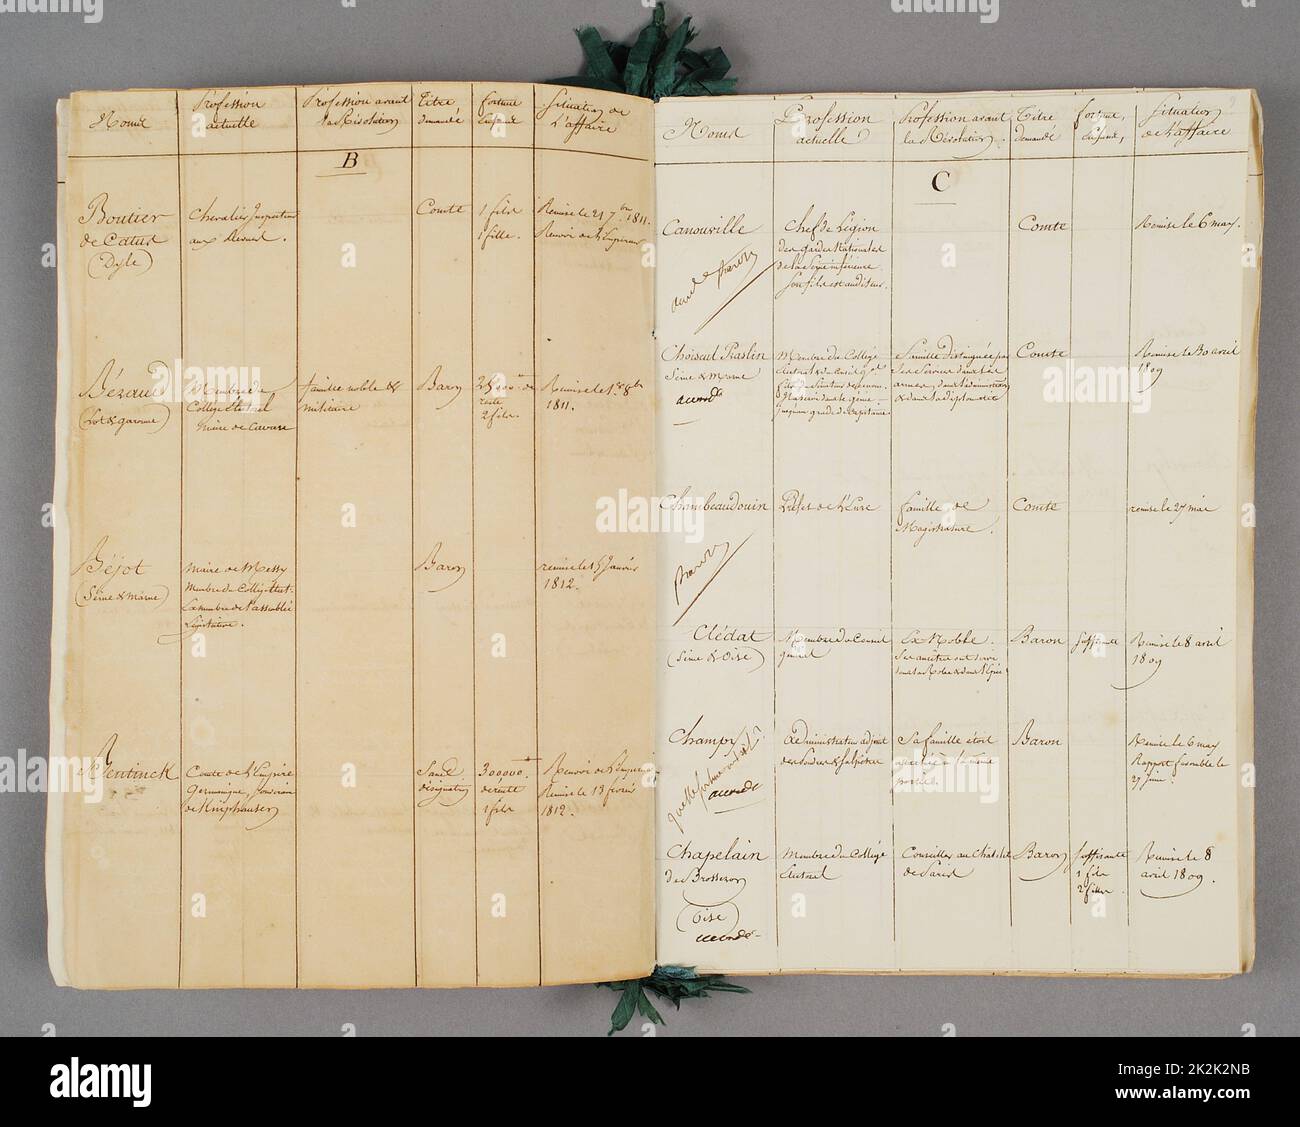 Noms
Profession
actuelle
Profession avant
la Révolution
Titre
demandé
fortune
Enfans
Situation de
l'affaire
B
Boutier
de Catus
(Dyle)
Chevalier Inspecteur
aux Revues.
Comte
1 fils
1 fille.
Remise le 21 7bre 1811.
Renvoi de l'Empereur
Bézaud
(Lot & garonne)
Membre du
Collège Electoral
Maire de
famille noble &
militaire
Baron
de
rente
2 fils.
Remise le 1er 8bre
1811.
Béjot
(Seine & Marne)
Maire de Messy
Membre du Collège Elect.
Ex membre de l'assemblée
Législative.
Baron
remise le 15 Janvier
1812.
Bentinck
Comte de l'Empire
Germanique, Souverain
de Kniphausen
Sans
désignation
300000
de rente
1 fils
Renvoi de l'Empereur
Remise le 13 février
1812.
Noms
Profession
actuelle
Profession avant
la Révolution
Titre
demandé
fortune,
Enfans,
Situation
de l'affaire
C
Canouville
Baron
Chef de Légion
des gardes Nationales
de la Seine inférieure.
Son fils est auditeur.
Comte
Remise le 6 may.
Choiseul Praslin
Seine & Marne
accordé
Membre du Collège
Electoral &
famille distinguée par
ses services dans les
armées, dans l'administration
& dans la diplomatie
Comte
Remise le 30 avril
1809
Chambeaudouin
Baron
Préfet de l'Eure
famille de
Magistrature.
Comte
remise le 27 mai
Clédat
(Seine & Oise)
Membre du Conseil
général
Ex Noble.
Ses ancêtres ont servi
dans la Robe & dans l'Epée
Baron
Suffisante
Remise le 8 avril
1809
Champy
accordé
Administrateur adjoint
des Poudres & Salpêtres
Sa famille étoit
Baron
Remise le 6 may
Rapport favorable le
27 juin.
Chapelain
de Brosseron
(Oise)
accordé
Membre du Collège
Electoral
Conseiller au Chatelet
de Paris
Baron
Suffisante
1 fils
2 filles.
Remise le 8
avril 1809.
alamy
alamy
Image ID: 2K2K2NB
www.alamy.com